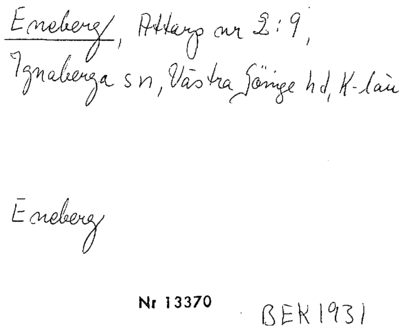 Eneberg, Attarp nr 2:9,
Ignaberga sn, Västra Göinge hd, K-län
Eneberg
Nr 13370
BEK 1931